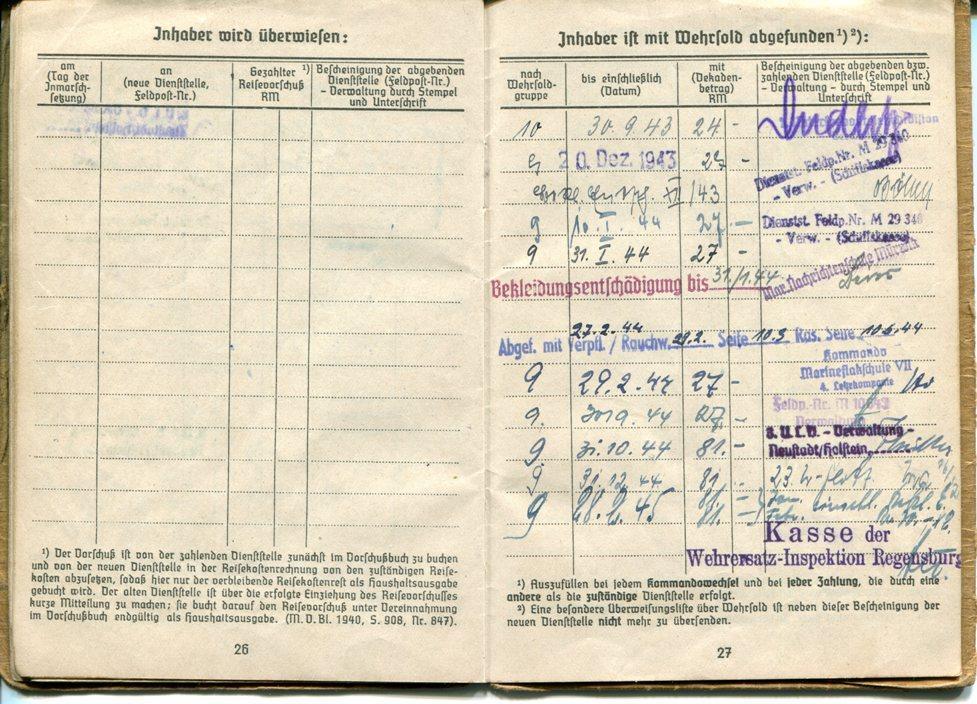 Inhaber wird überwiesen:
am
(Tag der
Inmarsch-
setzung)
an
(neue Dienststelle,
Feldpost-Nr.)
Gezahlter ¹)
Reisevorschuß
RM
Bescheinigung der abgebenden
Dienststelle (Feldpost-Nr.)
- Verwaltung - durch Stempel
und Unterschrift
¹) Der Vorschuß ist von der zahlenden Dienststelle zunächst im Vorschußbuch zu buchen
und von der neuen Dienststelle in der Reisekostenrechnung von den zuständigen Reise-
kosten abzusetzen, sodaß hier nur der verbleibende Reisekostenrest als Haushaltsausgabe
gebucht wird. Der alten Dienststelle ist über die erfolgte Einziehung des Reisevorschusses
kurze Mitteilung zu machen; sie bucht darauf den Reisevorschuß unter Vereinnahmung
im Vorschußbuch endgültig als Haushaltsausgabe. (M. D. Bl. 1940, S. 908, Nr. 847).
26
Inhaber ist mit Wehrsold abgefunden ¹) ²):
nach
Wehrsold-
gruppe
bis einschließlich
(Datum)
mit
(Dekaden-
betrag)
RM
Bescheinigung der abgebenden bzw.
zahlenden Dienststelle (Feldpost-Nr.)
- Verwaltung - durch Stempel und
Unterschrift
10 30.9.43 24 -
20. Dez. 1943 27 -
Dienstst. Feldp.Nr. M 29 340
- Verw. - (Schiffskasse)
XII /43
9 10. I. 44 27. -
Dienstst. Feldp.Nr. M 29 340
- Verw. - (Schiffskasse)
9 31. I. 44 27 -
Bekleidungsentschädigung bis 31./1.44
Mar. Nachrichtenschule Mürwik
27.2.44
Abgef. mit Verpfl. / Rauchw. 29.2. Seite 10.3 Kas. Seite 10.6.44
Kommando
Marineflakschule VII
4. Lehrkompanie
9 29.2.44 27 -
Feldp.-Nr. M
Verwaltung
9. 30.9.44 27. -
3. U.L.D. - Verwaltung -
Neustadt/Holstein
9 31.10.44 81. -
9 31.12.44 81. -
9 28.2.45 81. -
Kasse der
Wehrersatz-Inspektion Regensburg
¹) Auszufüllen bei jedem Kommandowechsel und bei jeder Zahlung, die durch eine
andere als die zuständige Dienststelle erfolgt.
²) Eine besondere Überweisungsliste über Wehrsold ist neben dieser Bescheinigung der
neuen Dienststelle nicht mehr zu übersenden.
27